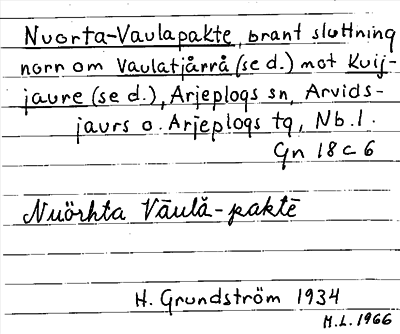 Nuorta-Vaulapakte, brant sluttning
norr om Vaulatjårrå (se d.) mot Kuij-
jaure (se d.), Arjeplogs sn, Arvids-
jaurs o. Arjeplogs tg, Nb. l.
Gn 18 c 6
Nuörhta Vāulå-paktē
H. Grundström 1934
M.L. 1966